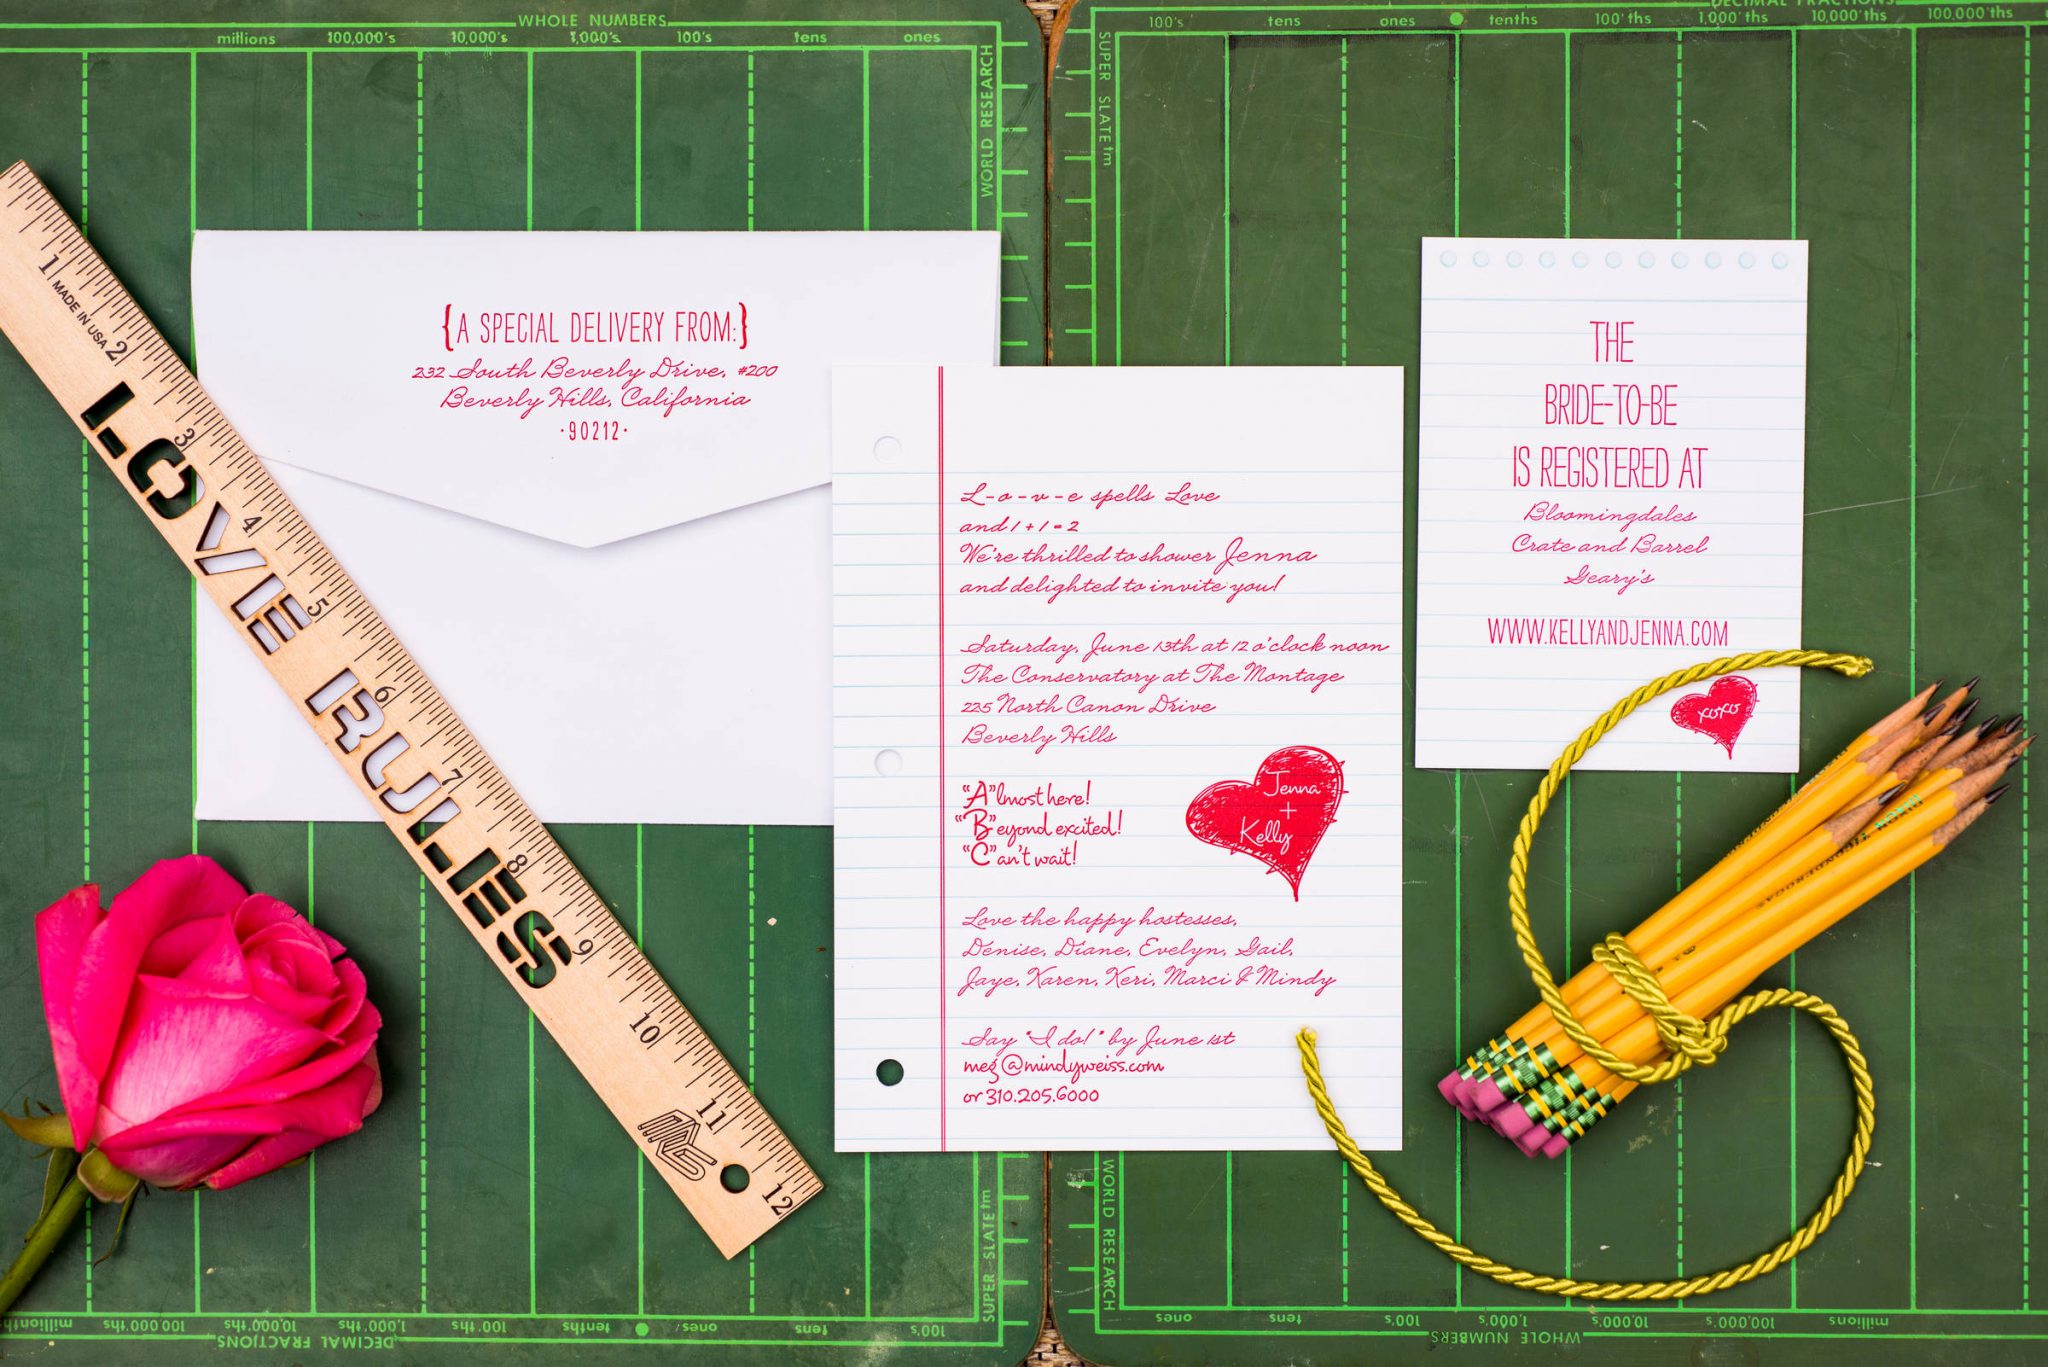 WHOLE NUMBERS
millions 100,000's 10,000's 1,000's 100's tens ones
WORLD RESEARCH
DECIMAL FRACTIONS
100's tens ones tenths 100'ths 1,000'ths 10,000'ths 100,000'ths
SUPER SLATE tm
1
MADE IN USA
2
3
4
5
6
7
8
9
10
11
12
LOVE RULES
{A SPECIAL DELIVERY FROM:}
232 South Beverly Drive, #200
Beverly Hills, California
·90212·
L-o-v-e spells Love
and 1 + 1 = 2
We're thrilled to shower Jenna
and delighted to invite you!
Saturday, June 13th at 12 o'clock noon
The Conservatory at The Montage
225 North Canon Drive
Beverly Hills
"A"lmost here!
"B"eyond excited!
"C"an't wait!
Jenna
+
Kelly
Love the happy hostesses,
Denise, Diane, Evelyn, Gail,
Jaye, Karen, Keri, Marci & Mindy
Say "I do!" by June 1st
meg@mindyweiss.com
or 310.205.6000
THE
BRIDE-TO-BE
IS REGISTERED AT
Bloomingdales
Crate and Barrel
Geary's
WWW.KELLYANDJENNA.COM
xoxo
SUPER SLATE tm
millionths 100,000'ths 10,000'ths 1,000'ths 100'ths tenths ones tens 100's
DECIMAL FRACTIONS
WORLD RESEARCH
ones tens 100's 1,000's 10,000's 100,000's millions
WHOLE NUMBERS